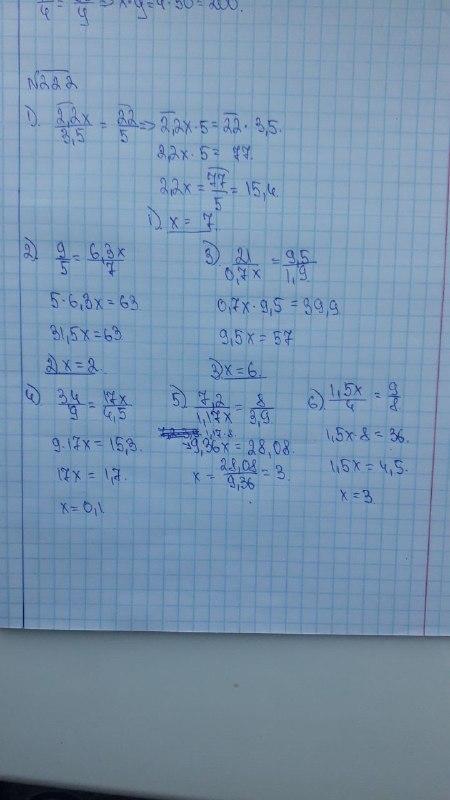 /4 = /y => x·y = 4·50 = 200.
№222
1). 2,2x/3,5 = 22/5 => 2,2x·5 = 22·3,5.
2,2x·5 = 77.
2,2x = 77/5 = 15,4.
1) x = 7
2) 9/5 = 6,3x/7
5·6,3x = 63
31,5x = 63
2) x = 2.
3) 21/0,7x = 9,5/1,9
0,7x·9,5 = 39,9
9,5x = 57
3) x = 6.
4) 34/9 = 17x/4,5
9·17x = 15,3.
17x = 1,7.
x = 0,1
5) 7,2/1,17x = 8/3,9
1,17·8
9,36x = 28,08.
x = 28,08/9,36 = 3.
6) 1,5x/4 = 9/8
1,5x·8 = 36.
1,5x = 4,5.
x = 3.